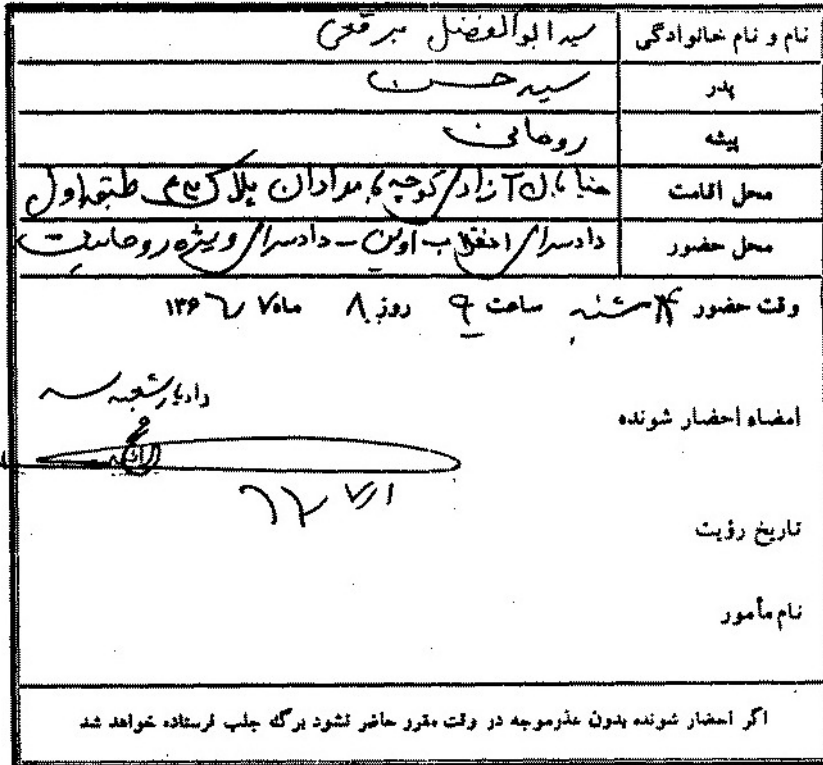 نام و نام خانوادگی سید ابوالفضل برقعی
پدر سید حسن
پیشه روحانی
محل اقامت خیابان آزادی کوچه مرادان پلاک طبقه اول
محل حضور دادسرای انقلاب اوین - دادسرای ویژه روحانیت
وقت حضور ۴ شنبه ساعت ۹ روز ۸ ماه ۷
دادیار شعبه سه
امضاء احضار شونده
تاریخ رؤیت
نام مأمور
اگر احضار شونده بدون عذر موجه در وقت مقرر حاضر نشود برگ جلب فرستاده خواهد شد